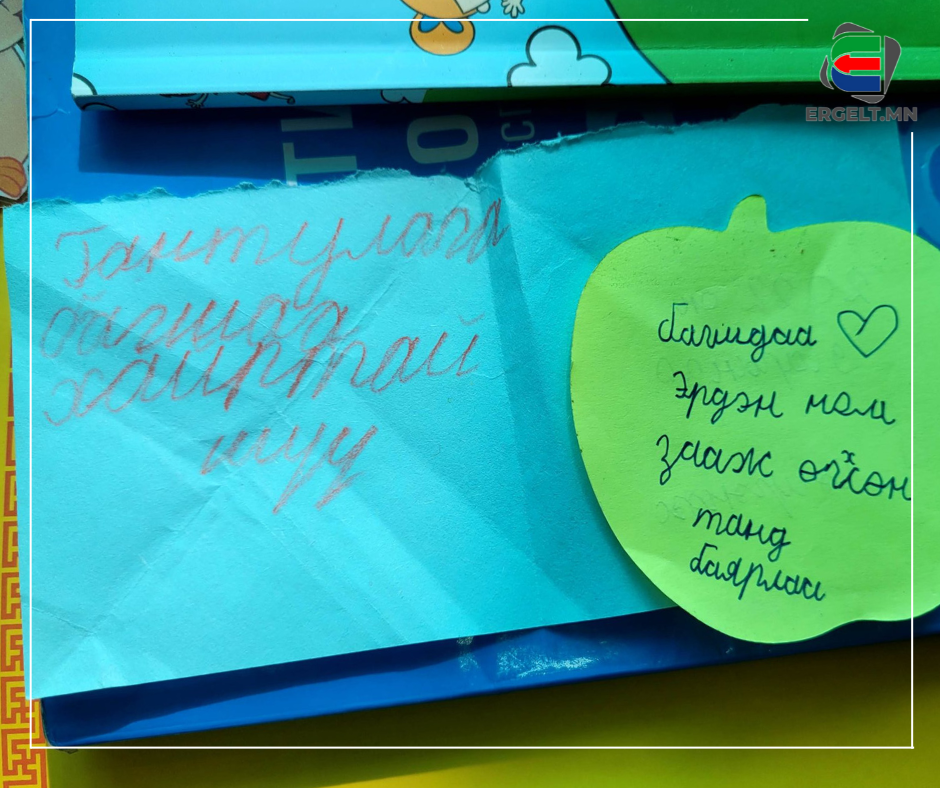 ERGELT.MN
Гантулага
багшдаа
хайртай
шүү
багшдаа
Эрдэн ном
зааж өгсөн
танд
баярлаа